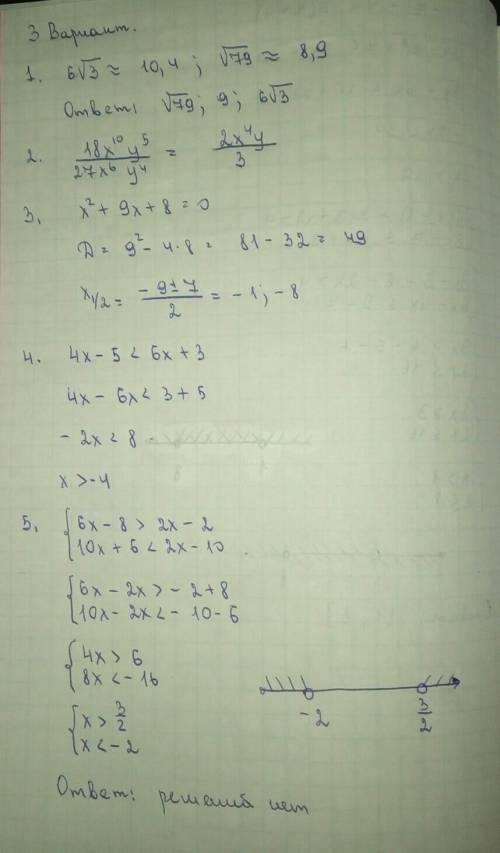 3 Вариант.
1. 6√3 ≈ 10,4 ; √79 ≈ 8,9
Ответ: √79; 9; 6√3
2. 18x¹⁰y⁵ / 27x⁶y⁴ = 2x⁴y / 3
3. x² + 9x + 8 = 0
D = 9² - 4·8 = 81 - 32 = 49
x1/2 = (-9±7) / 2 = -1; -8
4. 4x - 5 < 6x + 3
4x - 6x < 3 + 5
-2x < 8
x > -4
5. { 6x - 8 > 2x - 2
10x + 6 < 2x - 10
{ 6x - 2x > -2 + 8
10x - 2x < -10 - 6
{ 4x > 6
8x < -16
{ x > 3/2
x < -2
-2 3/2
Ответ: решений нет